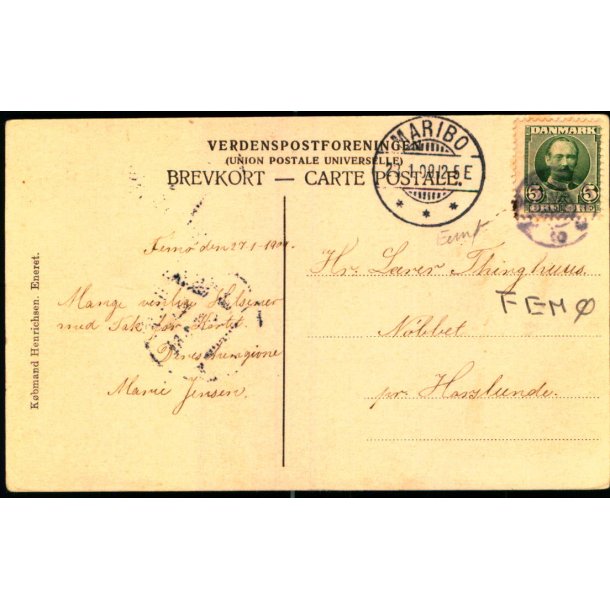 VERDENSPOSTFORENINGEN
(UNION POSTALE UNIVERSELLE)
BREVKORT — CARTE POSTALE.
MARIBO
27.1.09.12-5E
DANMARK
5 5
ØRE ØRE
Købmand Henrichsen. Eneret.
Femø den 27/1-1909.
Mange venlige Hilsener
med Tak for Kortet.
Deres hengivne
Marie Jensen.
Hr. Lærer Thinghuus
FEMØ
Nøbbet
pr. Horslunde.